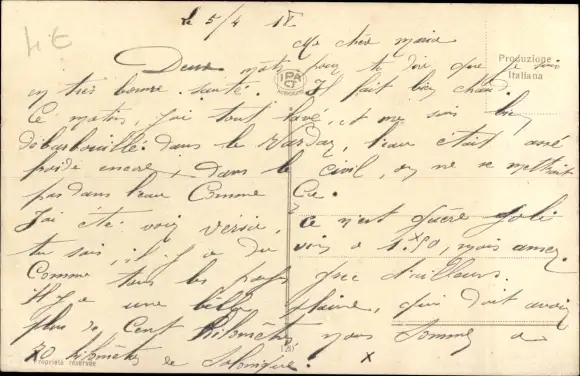 4€
le 5/4 18
Ma chère Marie
Produzione
Italiana
IPA
CT
Deux mots pour te dire que je suis
en très bonne santé. Il fait bien chaud.
Ce matin, j'ai tout lavé, et me suis bien
débarbouillé dans le Vardar, l'eau était assez
froide encore, dans le civil, on ne se mettrait
pas dans l'eau comme ça.
J'ai été voir Verria, ce n'est guère joli
tu sais, il y a du
Comme tous les pays grec d'ailleurs.
Il y a une belle plaine, qui doit avoir
plus de cent kilomètres nous sommes à
70 kilomètres de Salonique.
Proprietà riservata
120
x